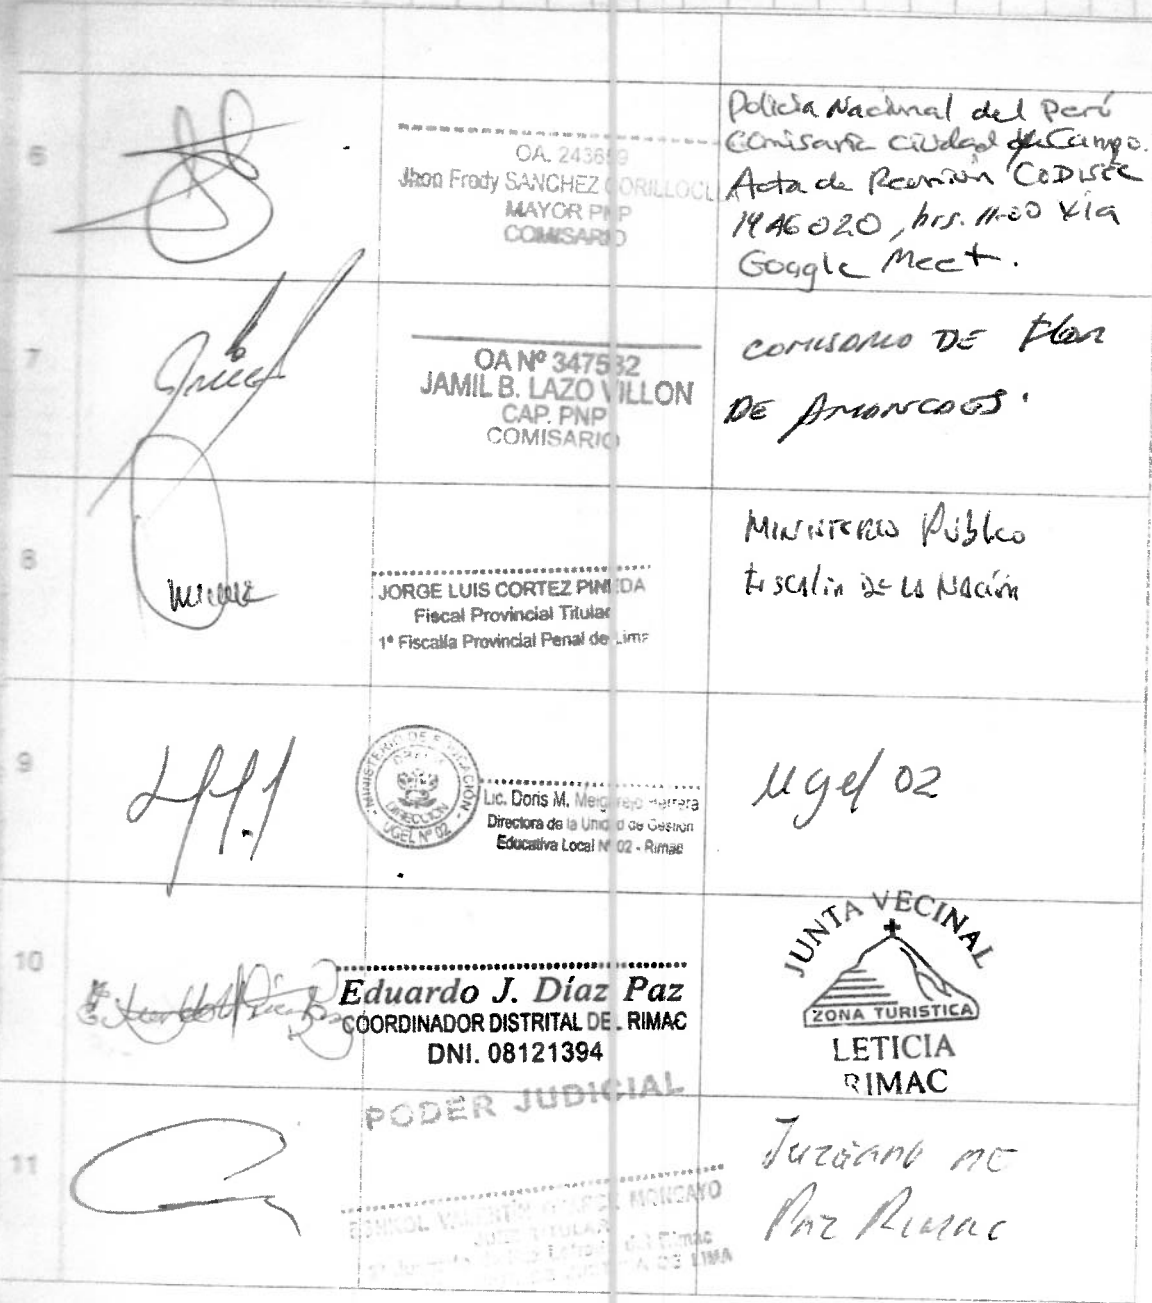 6
OA. 243659
Jhon Fredy SANCHEZ
MAYOR PNP
COMISARIO
Policia Nacional del Perú
Comisaria Ciudad y Campo.
Acta de Reunión CODISEC
14AGO20, hrs. 11-00 Via
Google Meet.
7
OA Nº 347532
JAMIL B. LAZO VILLON
CAP. PNP
COMISARIO
COMISARIO DE FLOR
DE AMANCAES.
8
JORGE LUIS CORTEZ PINEDA
Fiscal Provincial Titular
1ª Fiscalía Provincial Penal de Lima
MINISTERIO Público
Fiscalía DE LA Nación
9
MINISTERIO DE EDUCACIÓN
DIRECCIÓN
UGEL Nº 02
Lic. Doris M. Melgarejo Herrera
Directora de la Unidad de Gestión
Educativa Local Nº 02 - Rimac
Ugel 02
10
Eduardo J. Díaz Paz
COORDINADOR DISTRITAL DEL RIMAC
DNI. 08121394
JUNTA VECINAL
ZONA TURISTICA
LETICIA
RIMAC
11
PODER JUDICIAL
VALENTIN MONCAYO
JUEZ TITULAR
del Rimac
DE LIMA
Juzgado de
Paz Rimac